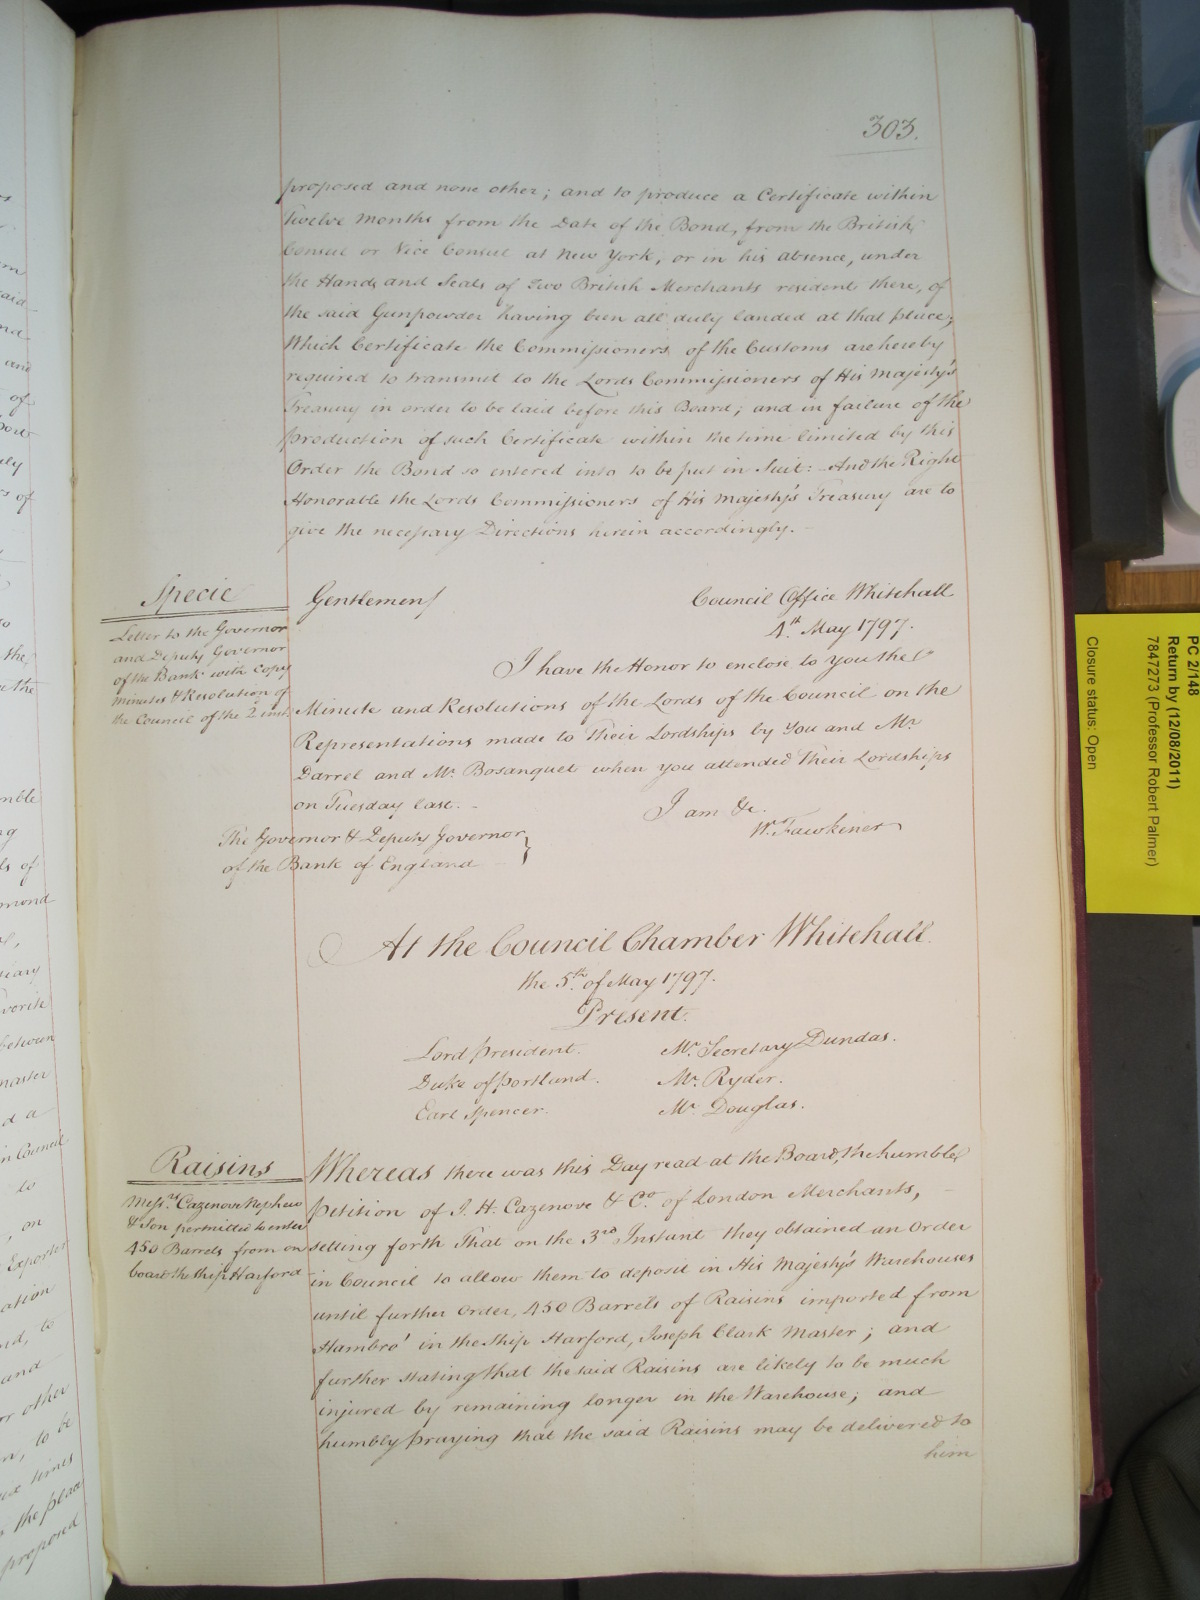 303.
proposed and none other; and to produce a Certificate within
Twelve Months from the Date of the Bond, from the British
Consul or Vice Consul at New York, or in his absence, under
the Hands and Seals of Two British Merchants resident there, of
the said Gunpowder having been all duly landed at that place;
Which Certificate the Commissioners of the Customs are hereby
required to transmit to the Lords Commissioners of His Majesty's
Treasury in order to be laid before this Board; and in failure of the
production of such Certificate within the time limited by this
Order the Bond so entered into to be put in Suit: And the Right
Honorable the Lords Commissioners of His Majesty's Treasury are to
give the necessary Directions herein accordingly.
Specie
Letter to the Governor
and Deputy Governor
of the Bank with copy
Minutes & Resolution of
the Council of the 2 inst.
Gentlemen/
Council Office Whitehall
4th May 1797.
I have the Honor to enclose to you the
Minute and Resolutions of the Lords of the Council on the
Representations made to Their Lordships by You and Mr.
Darrel and Mr. Bosanquet when you attended Their Lordships
on Tuesday last.
I am &c.
W. Fawkener
The Governor & Deputy Governor
of the Bank of England
At the Council Chamber Whitehall.
the 5th of May 1797.
Present.
Lord President. Mr. Secretary Dundas.
Duke of Portland. Mr. Ryder.
Earl Spencer. Mr. Douglas.
Raisins
Messrs. Cazenove Nephew
& Son permitted to enter
450 Barrels from on
board the ship Harford
Whereas there was this Day read at the Board, the humble
Petition of J. H. Cazenove & Co. of London Merchants,
setting forth That on the 3rd Instant they obtained an Order
in Council to allow them to deposit in His Majesty's Warehouses
until further Order, 450 Barrels of Raisins imported from
Hambro' in the Ship Harford, Joseph Clark Master; and
further stating that the said Raisins are likely to be much
injured by remaining longer in the Warehouse; and
humbly praying that the said Raisins may be delivered to
him
PC 2/148
Return by (12/08/2011)
7847273 (Professor Robert Palmer)
Closure status: Open